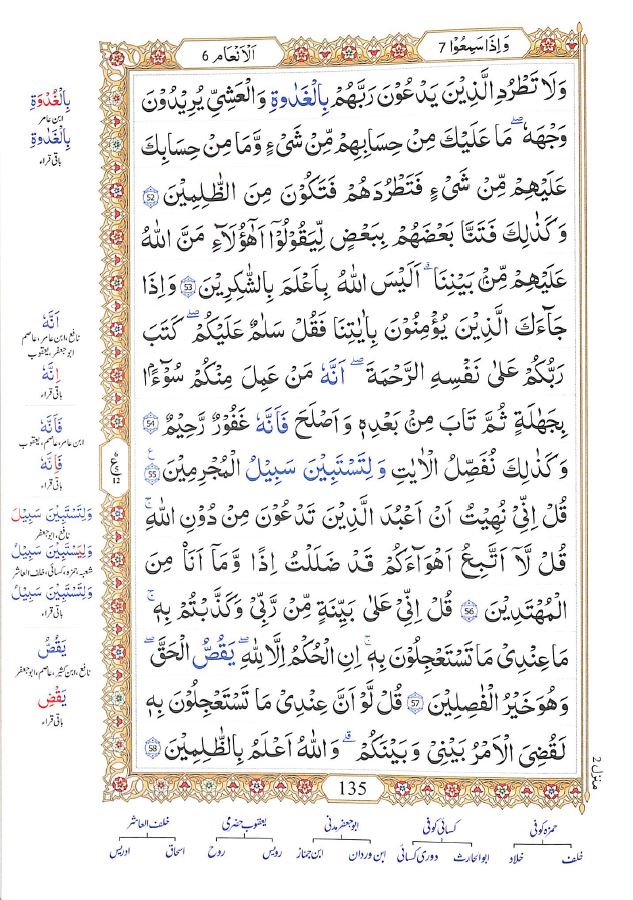 وَاِذَا سَمِعُوْا 7
اَلْاَنْعَام 6
وَلَا تَطْرُدِ الَّذِيْنَ يَدْعُوْنَ رَبَّهُمْ بِالْغَدٰوةِ وَالْعَشِيِّ يُرِيْدُوْنَ
وَجْهَهٗ ؕ مَا عَلَيْكَ مِنْ حِسَابِهِمْ مِّنْ شَيْءٍ وَّمَا مِنْ حِسَابِكَ
عَلَيْهِمْ مِّنْ شَيْءٍ فَتَطْرُدَهُمْ فَتَكُوْنَ مِنَ الظّٰلِمِيْنَ 52
وَكَذٰلِكَ فَتَنَّا بَعْضَهُمْ بِبَعْضٍ لِّيَقُوْلُوْٓا اَهٰٓؤُلَآءِ مَنَّ اللّٰهُ
عَلَيْهِمْ مِّنْۢ بَيْنِنَا ؕ اَلَيْسَ اللّٰهُ بِاَعْلَمَ بِالشّٰكِرِيْنَ 53 وَاِذَا
جَآءَكَ الَّذِيْنَ يُؤْمِنُوْنَ بِاٰيٰتِنَا فَقُلْ سَلٰمٌ عَلَيْكُمْ كَتَبَ
رَبُّكُمْ عَلٰى نَفْسِهِ الرَّحْمَةَ ۙ اَنَّهٗ مَنْ عَمِلَ مِنْكُمْ سُوْٓءًۢا
بِجَهَالَةٍ ثُمَّ تَابَ مِنْۢ بَعْدِهٖ وَاَصْلَحَ فَاَنَّهٗ غَفُوْرٌ رَّحِيْمٌ 54
وَكَذٰلِكَ نُفَصِّلُ الْاٰيٰتِ وَلِتَسْتَبِيْنَ سَبِيْلُ الْمُجْرِمِيْنَ 55
قُلْ اِنِّيْ نُهِيْتُ اَنْ اَعْبُدَ الَّذِيْنَ تَدْعُوْنَ مِنْ دُوْنِ اللّٰهِ
قُلْ لَّآ اَتَّبِعُ اَهْوَآءَكُمْ قَدْ ضَلَلْتُ اِذًا وَّمَآ اَنَا۠ مِنَ
الْمُهْتَدِيْنَ 56 قُلْ اِنِّيْ عَلٰى بَيِّنَةٍ مِّنْ رَّبِّيْ وَكَذَّبْتُمْ بِهٖ
مَا عِنْدِيْ مَا تَسْتَعْجِلُوْنَ بِهٖ اِنِ الْحُكْمُ اِلَّا لِلّٰهِ يَقُصُّ الْحَقَّ
وَهُوَ خَيْرُ الْفٰصِلِيْنَ 57 قُلْ لَّوْ اَنَّ عِنْدِيْ مَا تَسْتَعْجِلُوْنَ بِهٖ
لَقُضِيَ الْاَمْرُ بَيْنِيْ وَبَيْنَكُمْ وَاللّٰهُ اَعْلَمُ بِالظّٰلِمِيْنَ 58
135
بِالْغُدْوَةِ
ابن عامر
بِالْغَدٰوةِ
باقی قراء
اَنَّهٗ
نافع، ابن عامر، عاصم
ابو جعفر، یعقوب
اِنَّهٗ
باقی قراء
فَاَنَّهٗ
ابن عامر، عاصم، یعقوب
فَاِنَّهٗ
باقی قراء
6
ع
5
12
وَلِتَسْتَبِيْنَ سَبِيْلَ
نافع، ابو جعفر
وَلِيَسْتَبِيْنَ سَبِيْلُ
شعبہ، حمزہ، کسائی، خلف العاشر
وَلِتَسْتَبِيْنَ سَبِيْلُ
باقی قراء
يَقُصُّ
نافع، ابن کثیر، عاصم، ابو جعفر
يَقْضِ
باقی قراء
منزل 2
حمزہ کوفی کسائی کوفی ابو جعفر مدنی یعقوب حضرمی خلف العاشر
خلف خلاد ابو الحارث دوری کسائی ابن وردان ابن جماز رویس روح اسحاق ادریس